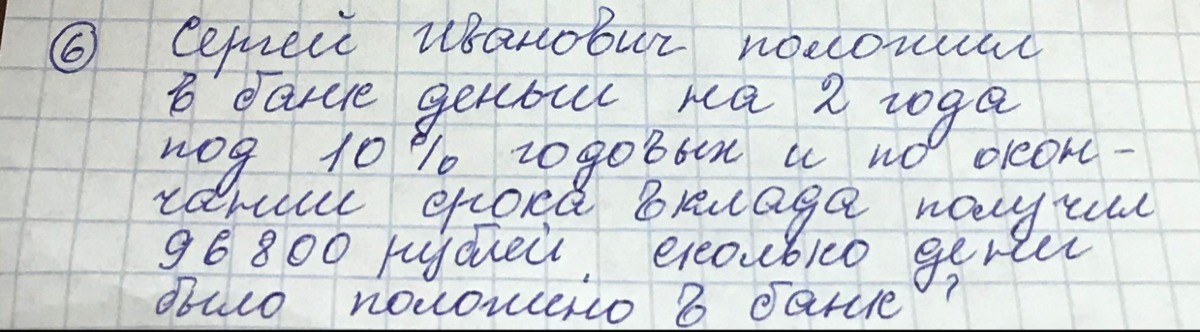 ⑥ Сергей Иванович положил
в банк деньги на 2 года
под 10% годовых и по окон-
чании срока вклада получил
96800 рублей. сколько денег
было положено в банк?